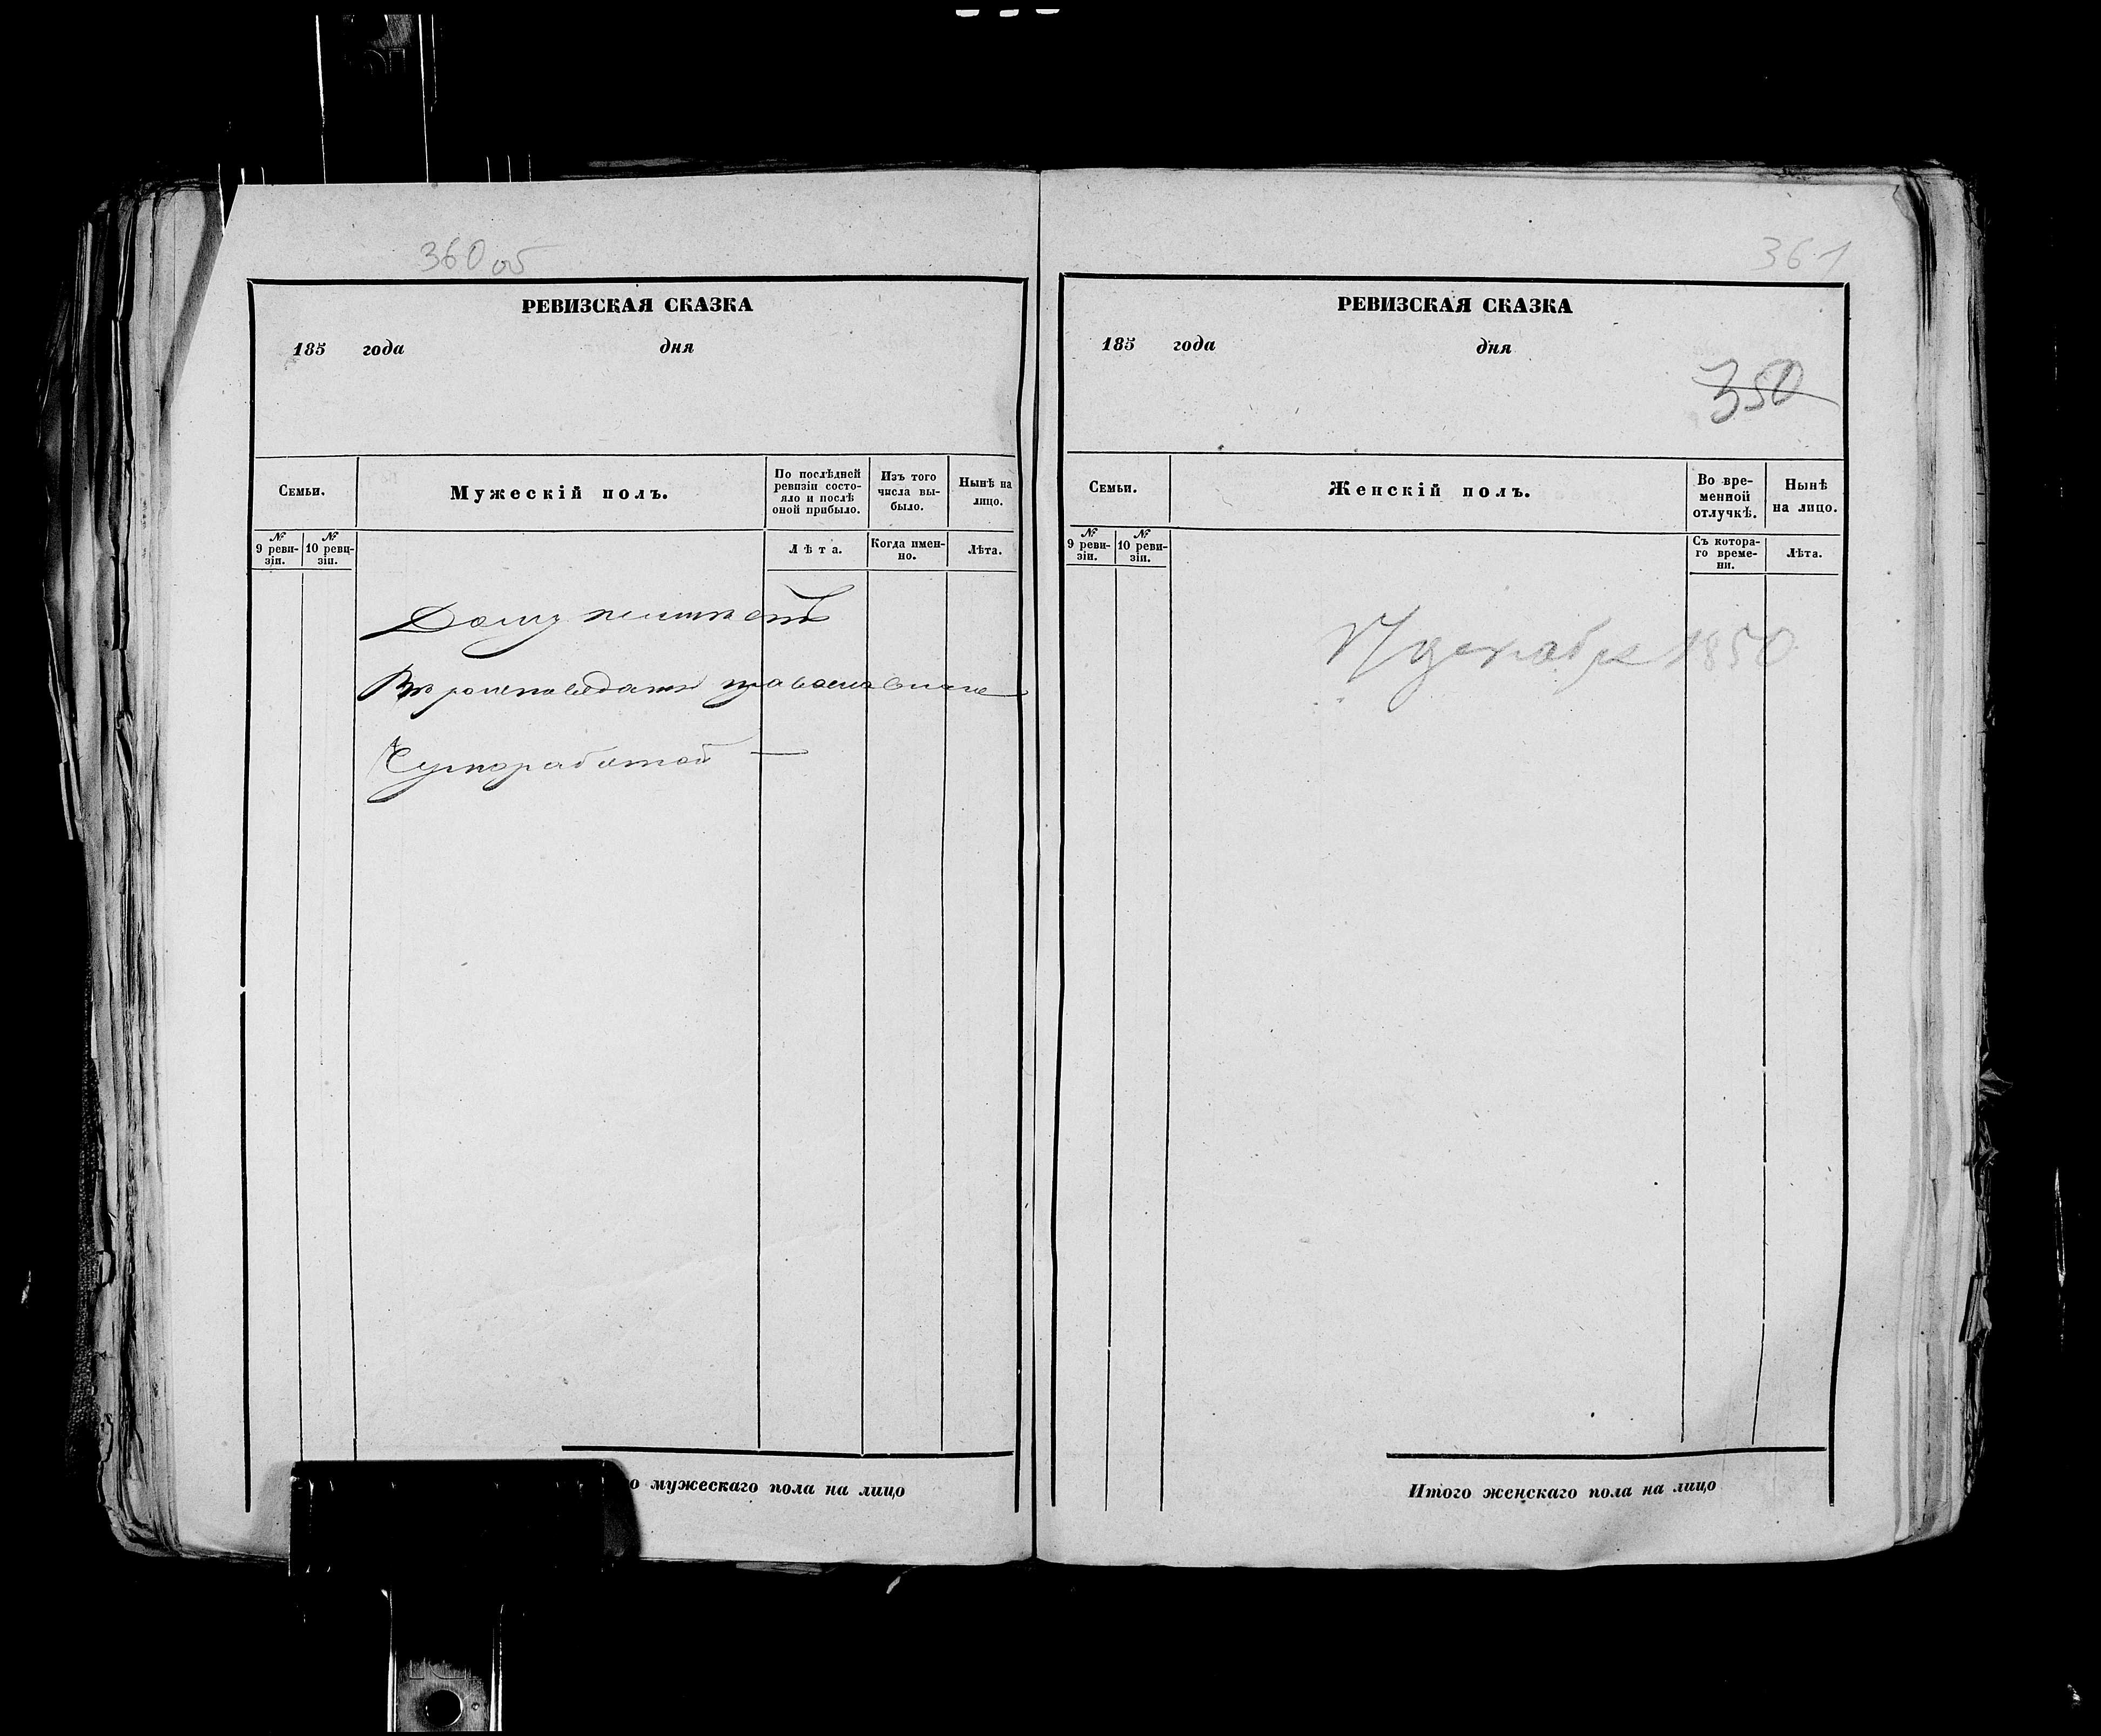 360 об
РЕВИЗСКАЯ СКАЗКА
185 года дня
Семьи.
Мужескій полъ.
По послѣдней ревизіи состо-
яло и послѣ
оной прибыло.
Изъ того
числа вы-
было.
Нынѣ на
лицо.
№
9 реви-
зіи.
№
10 реви-
зіи.
Лѣта.
Когда имен-
но.
Лѣта.
Вѣроисповедания православнаго
о мужескаго пола на лицо
361
РЕВИЗСКАЯ СКАЗКА
185 года дня
350
Семьи.
Женскій полъ.
Во вре-
менной
отлучкѣ.
Нынѣ
на лицо.
№
9 реви-
зіи.
№
10 реви-
зіи.
Съ котора-
го време-
ни.
Лѣта.
декабря 1850
Итого женскаго пола на лицо